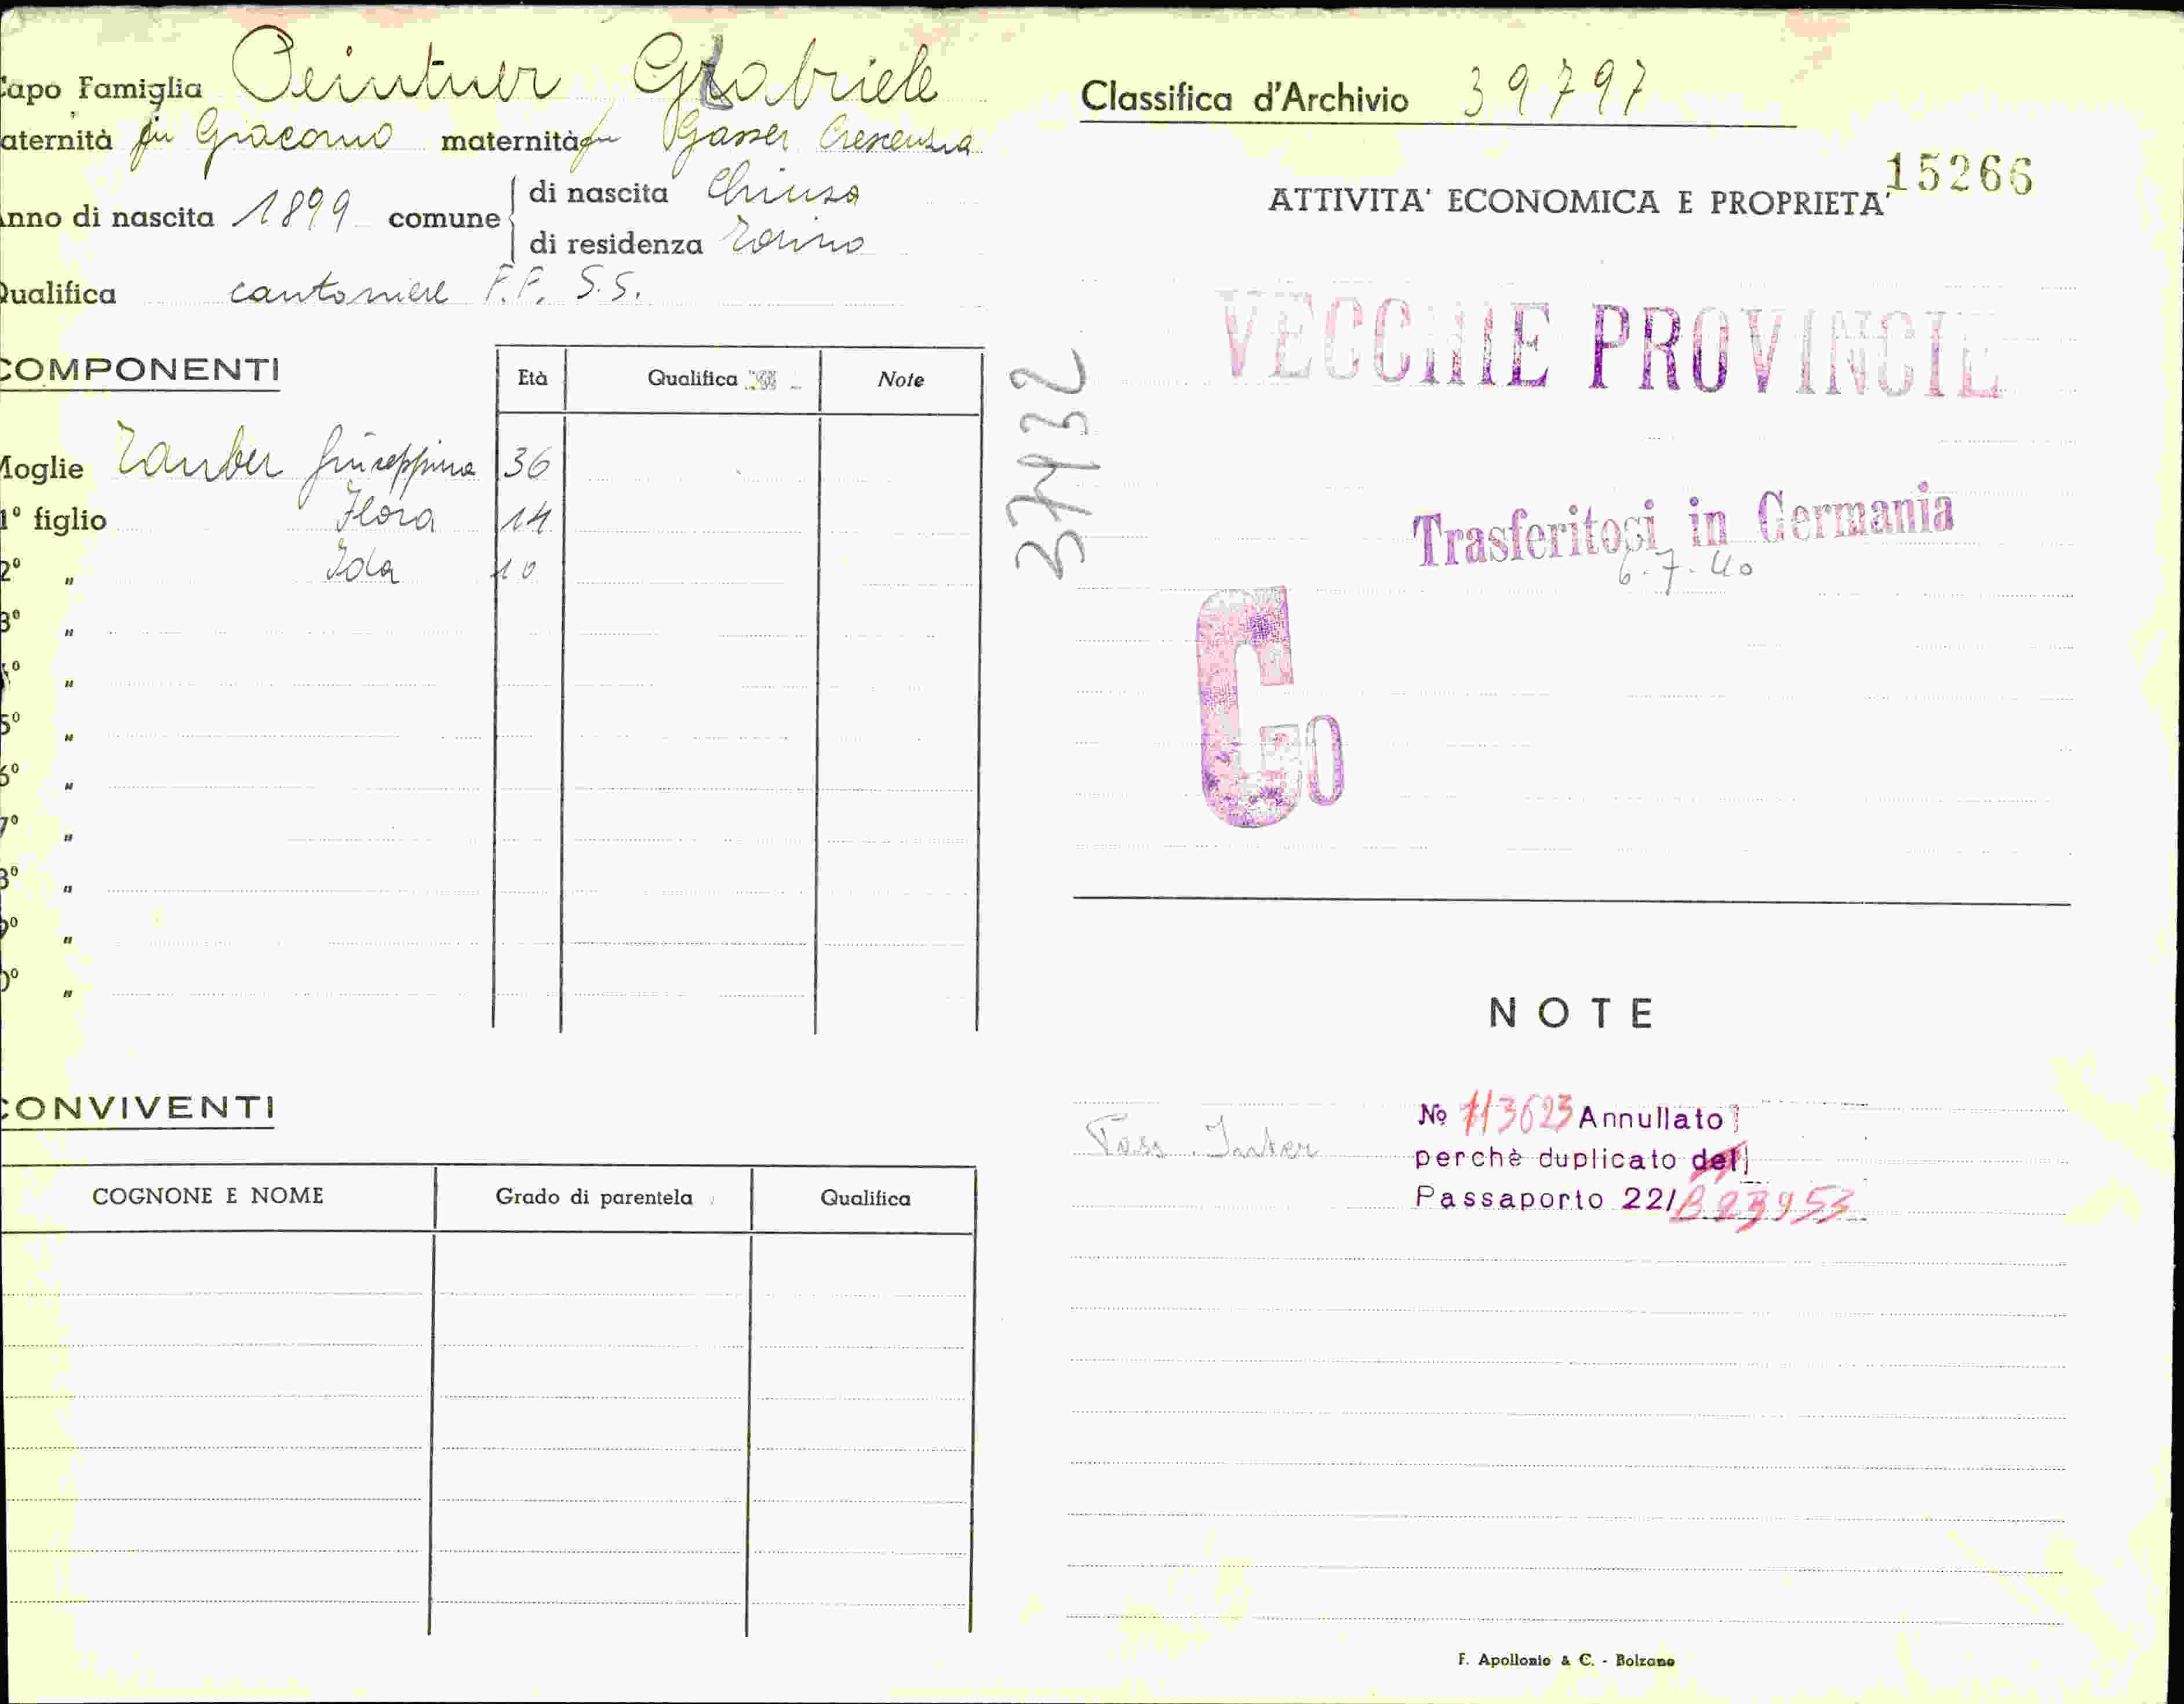 Capo Famiglia Peintner Gabriele
aternità fu Giacomo maternità fu Gasser Crescenzia
nno di nascita 1899 comune
di nascita Chiusa
di residenza Torino
Qualifica cantoniere F.F. S.S.
COMPONENTI
Età Qualifica Note
Moglie Tauber Giuseppina 36
1º figlio Flora 14
2º " Ida 10
3º "
"
5º "
6º "
7º "
8º "
9º "
0º "
CONVIVENTI
COGNONE E NOME Grado di parentela Qualifica
37432
Classifica d'Archivio 39797
15266
ATTIVITA' ECONOMICA E PROPRIETA'
VECCHIE PROVINCIE
Trasferitosi in Germania
6.7.40
G
0
NOTE
Nº 113623 Annullato
Pass. Inter
perchè duplicato del
Passaporto 22/B 23953
F. Apollonio & C. - Bolzano